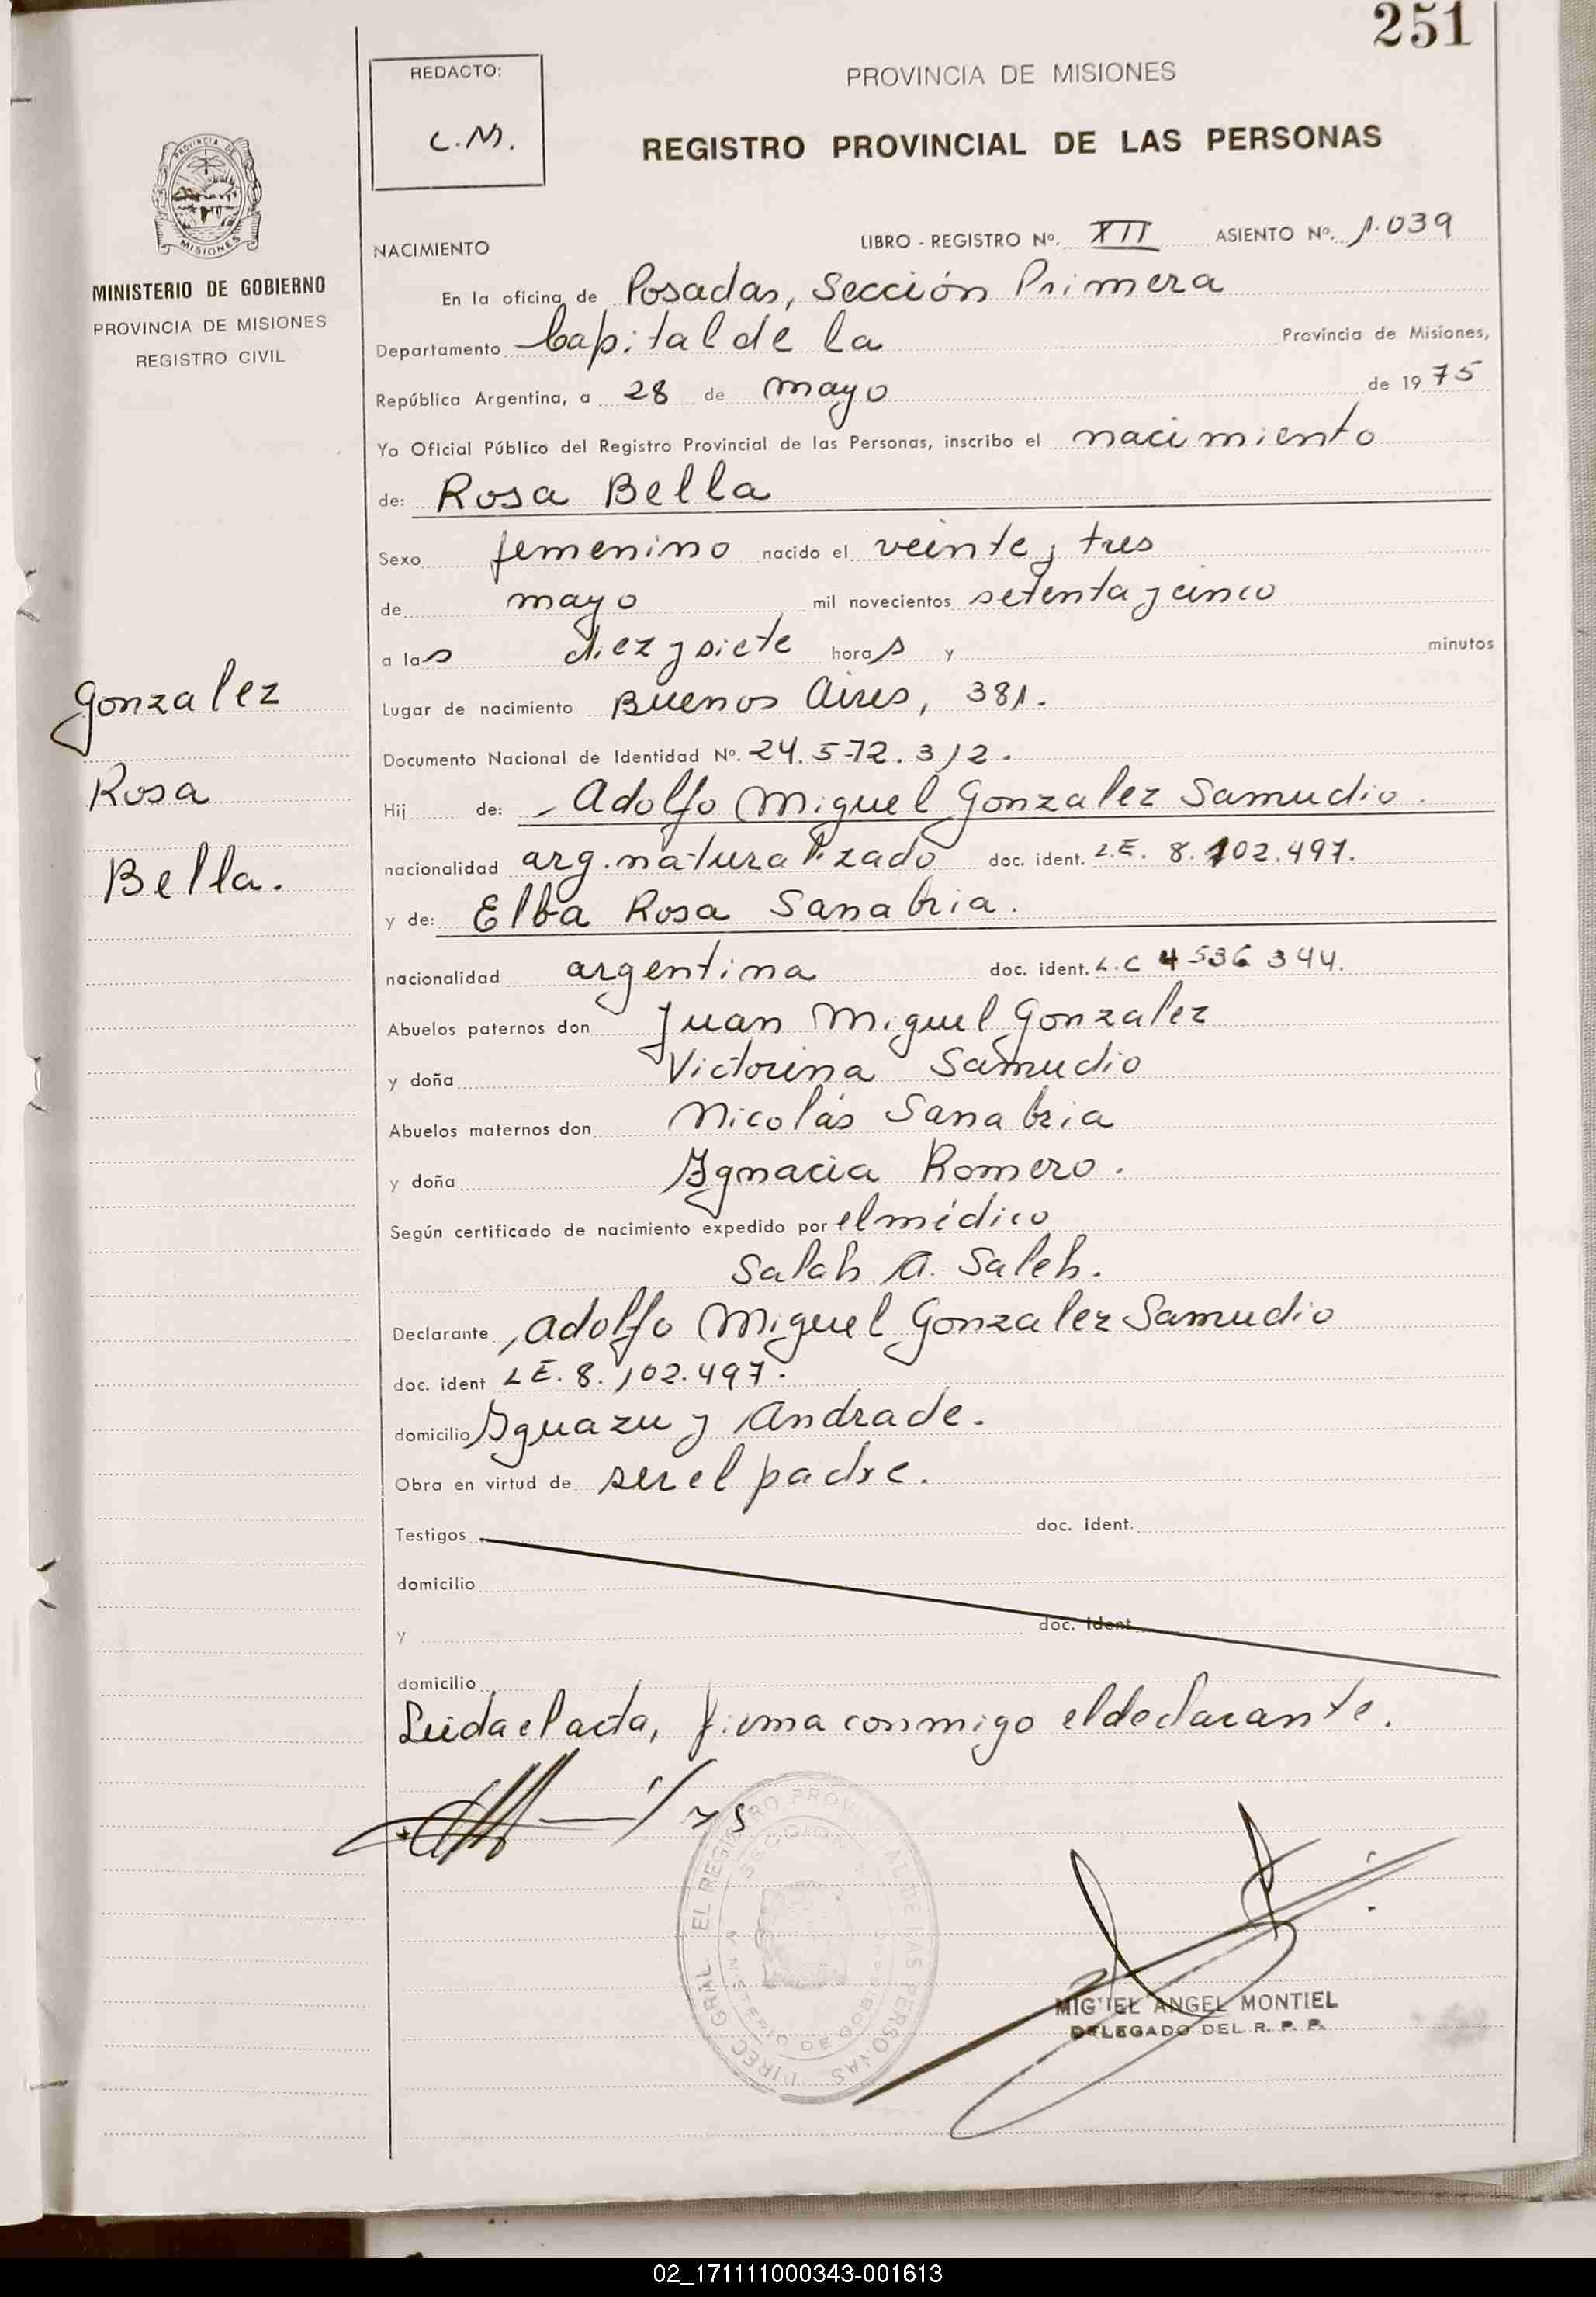 251
REDACTO:
C.M.
PROVINCIA DE MISIONES
REGISTRO PROVINCIAL DE LAS PERSONAS
MISIONES
MINISTERIO DE GOBIERNO
PROVINCIA DE MISIONES
REGISTRO CIVIL
Gonzalez
Rosa
Bella.
NACIMIENTO LIBRO - REGISTRO Nº. XII ASIENTO Nº. 1.039
En la oficina de Posadas, Sección Primera
Departamento Capital de la Provincia de Misiones,
República Argentina, a 28 de mayo de 1975
Yo Oficial Público del Registro Provincial de las Personas, inscribo el nacimiento
de: Rosa Bella
Sexo femenino nacido el veinte y tres
de mayo mil novecientos setenta y cinco
a las diez y siete horas y minutos
Lugar de nacimiento Buenos Aires, 381.
Documento Nacional de Identidad Nº. 24.572.312.
Hij de: Adolfo Miguel Gonzalez Samudio.
nacionalidad arg. naturalizado doc. ident. L.E. 8.102.497.
y de: Elba Rosa Sanabria.
nacionalidad argentina doc. ident. L.C 4 536 344.
Abuelos paternos don Juan Miguel Gonzalez
y doña Victorina Samudio
Abuelos maternos don Nicolás Sanabria
y doña Ignacia Romero.
Según certificado de nacimiento expedido por el médico
Salah A. Saleh.
Declarante Adolfo Miguel Gonzalez Samudio
doc. ident LE. 8.102.497.
domicilio Iguazu y Andrade.
Obra en virtud de ser el padre.
Testigos doc. ident.
domicilio
y doc. ident
domicilio
Leida el acta, firma conmigo el declarante.
MIGUEL ANGEL MONTIEL
DELEGADO DEL R. P. P.
02_171111000343-001613